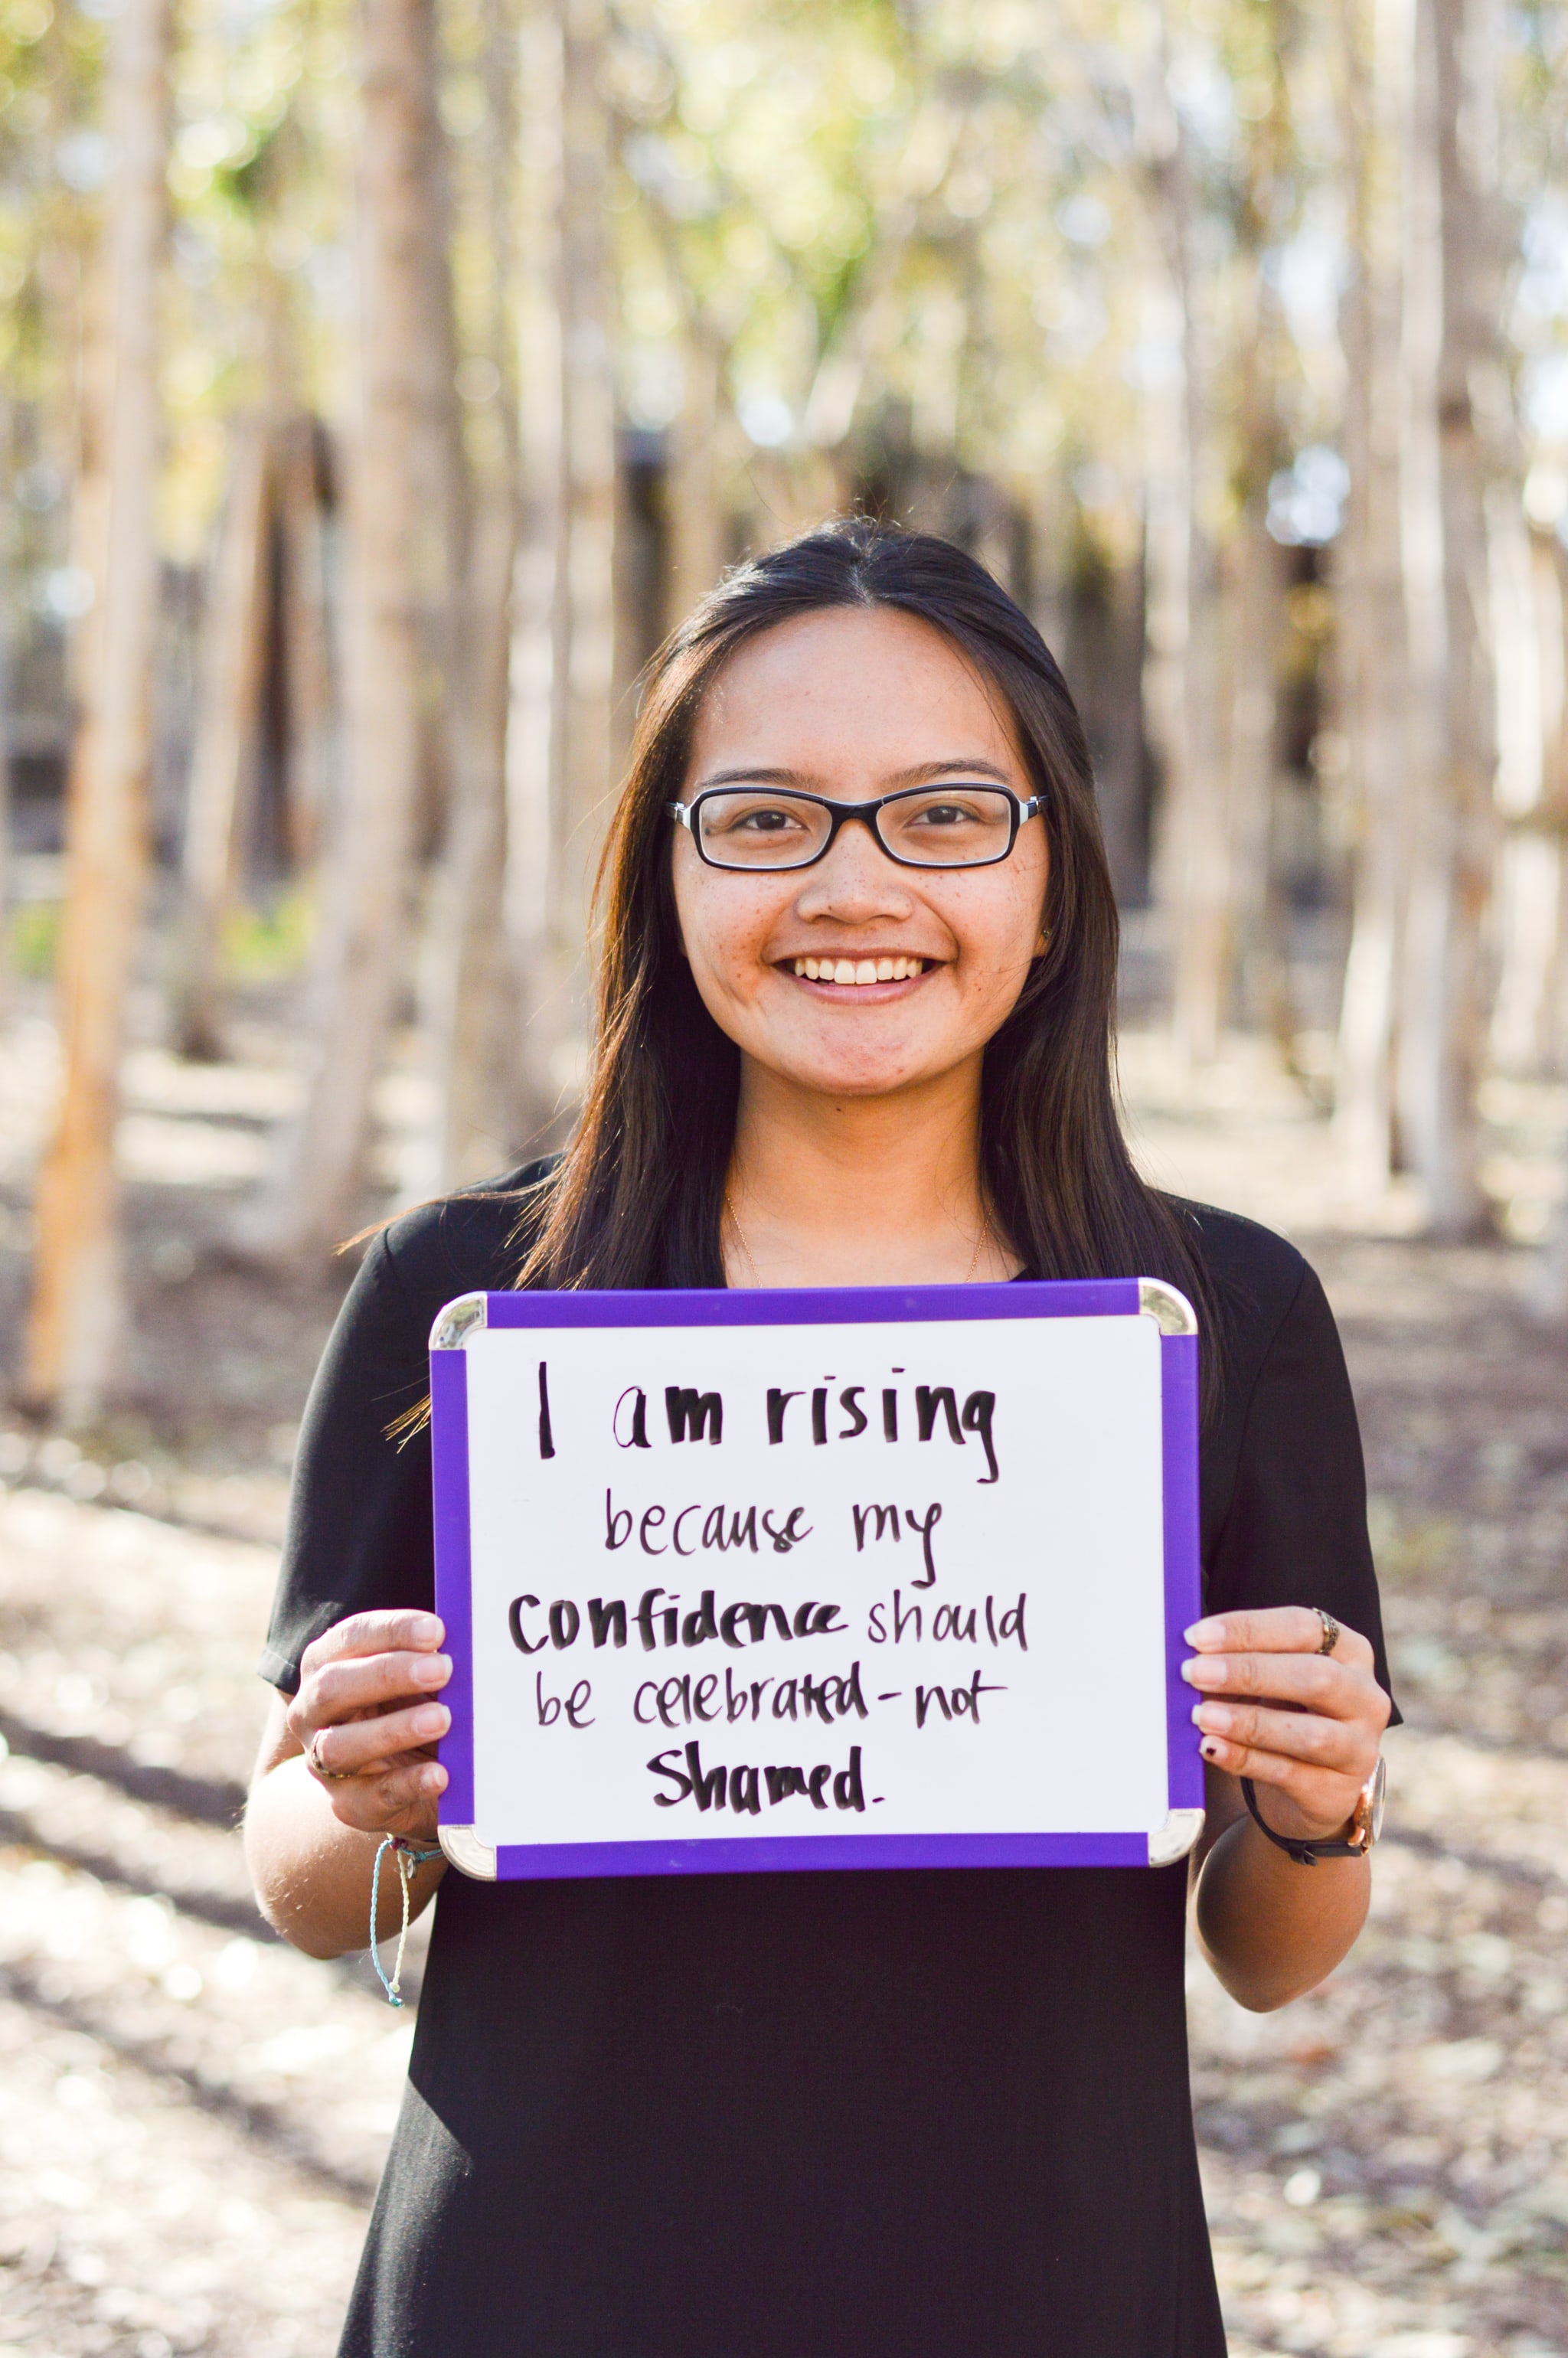 I am rising
because my
confidence should
be celebrated-not
Shamed.